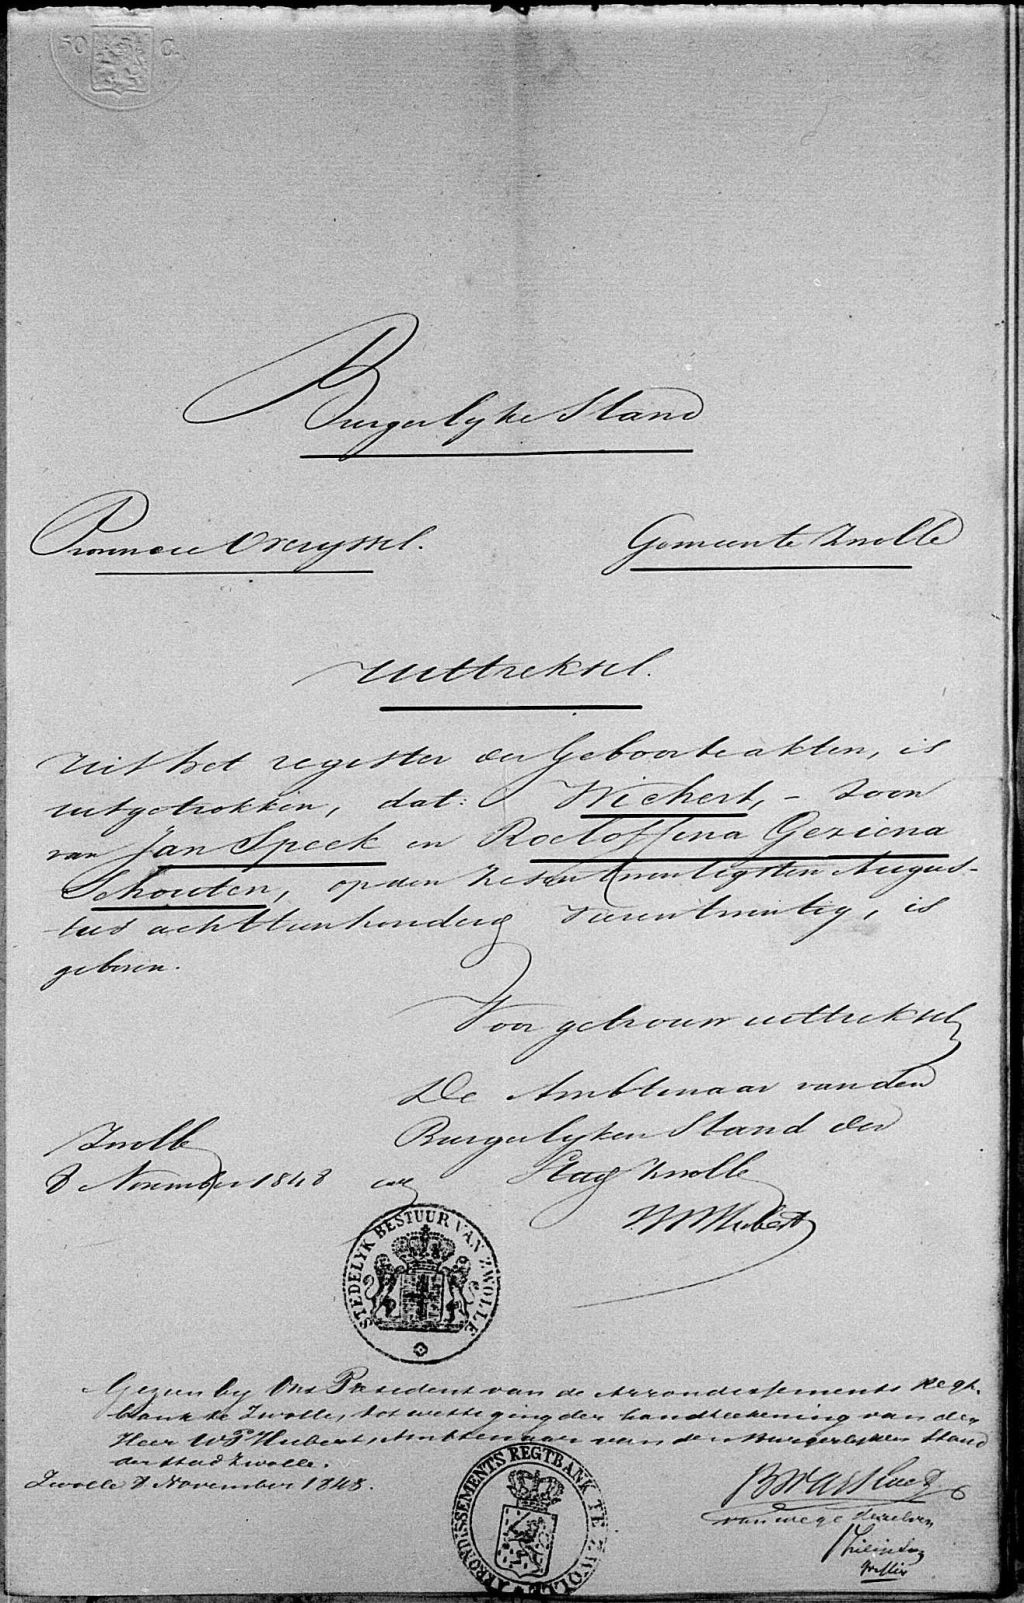 50 C.
Burgerlyke Stand
Provincie Overyssel.
Gemeente Zwolle
Uittreksel.
Uit het register der Geboorteakten, is
uitgetrokken, dat: Wichert, - zoon
van Jan Speek en Roeloffina Geziena
Schouten, op den zesentwintigsten Augus-
tus achttienhonderd vierentwintig, is
geboren.
Voor getrouw uittreksel
De Ambtenaar van den
Burgerlyken Stand der
Stad Zwolle
Zwolle
8 November 1848
WP Hubert
STEDELYK BESTUUR VAN ZWOLLE
Gezien by Ons President van de Arrondissements Regt-
bank te Zwolle, tot wettiging der handteekening van den
Heer WP Hubert, Ambtenaar van den Burgerlyken Stand
der stad Zwolle.
Zwolle 8 November 1848.
van wege dezelven
Griffier
ARRONDISSEMENTS REGTBANK TE ZWOLLE